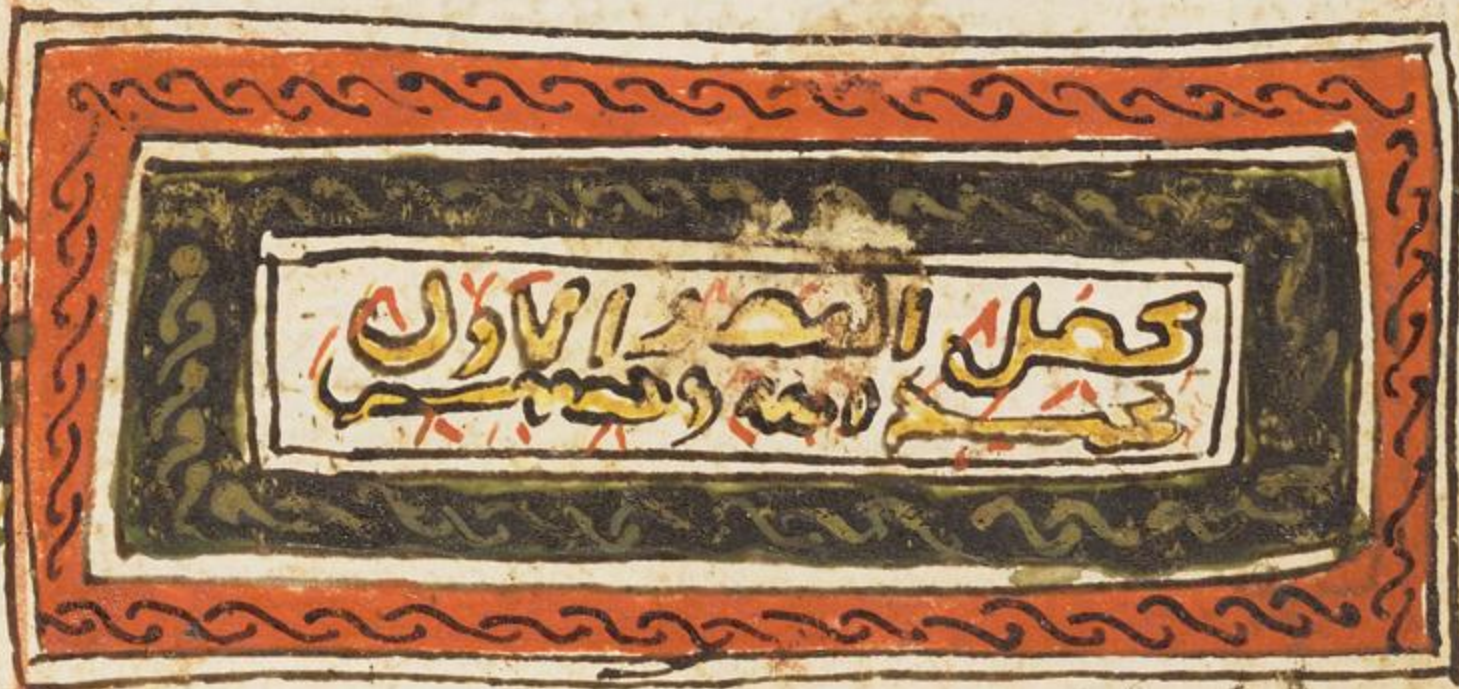 كمل النصف الاول
بحمد الله